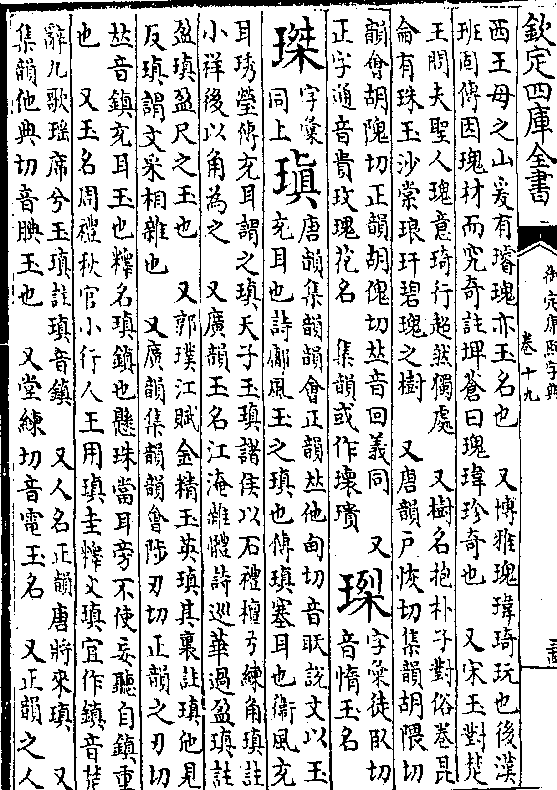 欽定四庫全書
御定康熙字典
卷十九
西王母之山爰有璿瑰亦玉名也　又博雅瑰瑋琦玩也後漢
班固傳因瑰材而究奇註埤蒼曰瑰瑋珍奇也　又宋玉對楚
王問夫聖人瑰意琦行超然獨處　又樹名抱朴子對俗卷昆
侖有珠玉沙棠琅玕碧瑰之樹　又唐韻戸恢切集韻胡隈切
韻會胡隗切正韻胡傀切𠀤音回義同　又
正字通音貴玫瑰花名　集韻或作瓌璝
琛字彙徒臥切
音惰玉名
𤧛字彙
同上
瑱唐韻集韻韻會正韻𠀤他甸切音瑱說文以玉
充耳也詩鄘風玉之瑱也傳瑱塞耳也衞風充
耳琇瑩傳充耳謂之瑱天子玉瑱諸侯以石禮檀弓練角瑱註
小祥後以角為之　又廣韻玉名江淹雜體詩巡華過盈瑱註
盈瑱盈尺之玉也　又郭璞江賦金精玉英瑱其裏註瑱他見
反瑱謂文采相雜也　又廣韻集韻韻會陟刃切正韻之刃切
𠀤音鎮充耳玉也釋名瑱鎮也懸珠當耳旁不使妄聽自鎮重
也　又玉名周禮秋官小行人王用瑱圭釋文瑱宜作鎮音楚
辭九歌瑤席兮玉瑱註瑱音鎮　又人名正韻唐將來瑱　又
集韻他典切音腆玉也　又堂練切音電玉名　又正韻之人